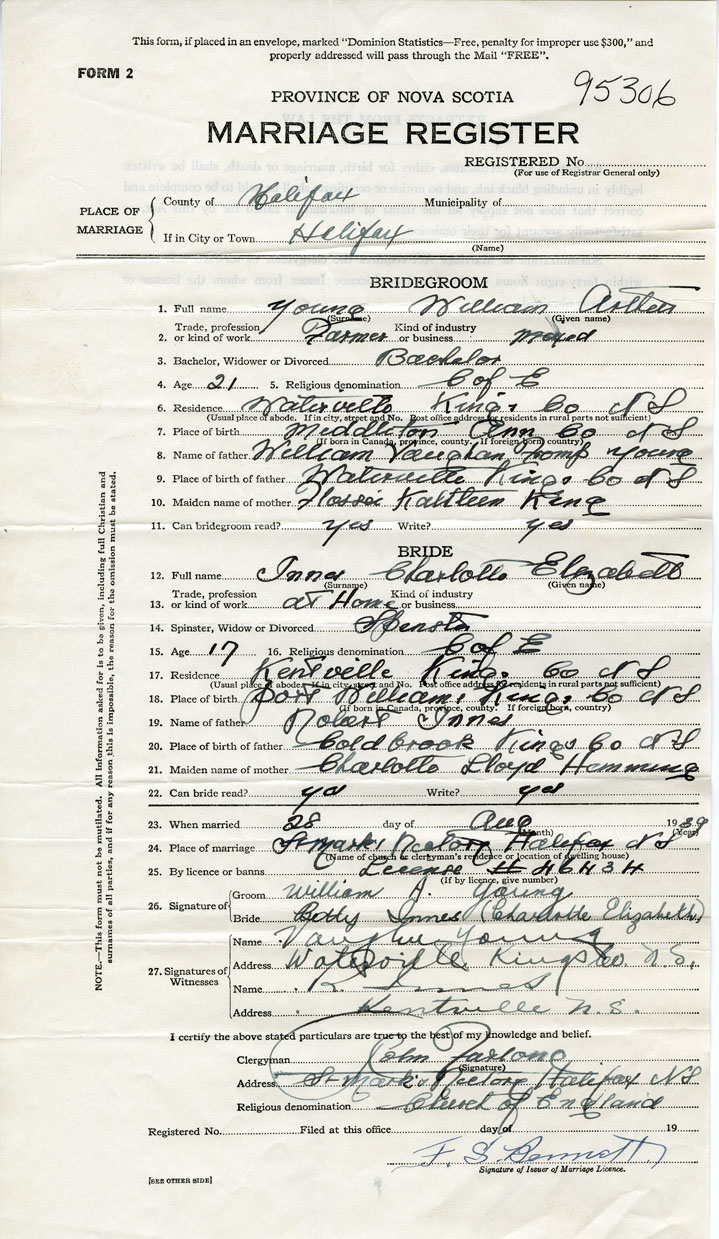 This form, if placed in an envelope, marked "Dominion Statistics—Free, penalty for improper use $300," and
properly addressed will pass through the Mail "FREE".
FORM 2
95306
PROVINCE OF NOVA SCOTIA
MARRIAGE REGISTER
REGISTERED No.
(For use of Registrar General only)
PLACE OF MARRIAGE
County of Halifax Municipality of
If in City or Town Halifax
(Name)
BRIDEGROOM
1. Full name Young William
(Surname) (Given name)
Trade, profession Kind of industry
2. or kind of work Farmer or business mixed
3. Bachelor, Widower or Divorced Bachelor
4. Age 21 5. Religious denomination C of E
6. Residence Waterville Kings Co N S
(Usual place of abode. If in city, street and No. Post office address for residents in rural parts not sufficient)
7. Place of birth Middleton Ann Co N S
(If born in Canada, province, county. If foreign born, country)
8. Name of father William Vaughan Young
9. Place of birth of father Waterville Kings Co N S
10. Maiden name of mother Kathleen King
11. Can bridegroom read? yes Write? yes
BRIDE
12. Full name Innes Charlotte Elizabeth
(Surname) (Given name)
Trade, profession Kind of industry
13. or kind of work at Home or business
14. Spinster, Widow or Divorced Spinster
15. Age 17 16. Religious denomination C of E
17. Residence Kentville Kings Co N S
(Usual place of abode. If in city, street and No. Post office address for residents in rural parts not sufficient)
18. Place of birth Port Williams Kings Co N S
(If born in Canada, province, county. If foreign born, country)
19. Name of father Robert Innes
20. Place of birth of father Coldbrook Kings Co N S
21. Maiden name of mother Charlotte Lloyd Hemming
22. Can bride read? yes Write? yes
23. When married 28 day of Aug 1939
(Month) (Year)
24. Place of marriage St Marks Rectory Halifax N S
(Name of church or clergyman's residence or location of dwelling house)
25. By licence or banns License # 46434
(If by licence, give number)
26. Signature of
Groom William A. Young
Bride Betty Innes (Charlotte Elizabeth)
27. Signatures of Witnesses
Name Vaughn Young
Address Waterville Kings Co. N.S.
Name R. Innes
Address Kentville N.S.
I certify the above stated particulars are true to the best of my knowledge and belief.
Clergyman John Furlong
(Signature)
Address St Mark's Rectory Halifax N S
Religious denomination Church of England
Registered No. Filed at this office day of 19
F. S. Bennett
Signature of Issuer of Marriage Licence.
[SEE OTHER SIDE]
NOTE.—This form must not be mutilated. All information asked for is to be given, including full Christian and
surnames of all parties, and if for any reason this is impossible, the reason for the omission must be stated.